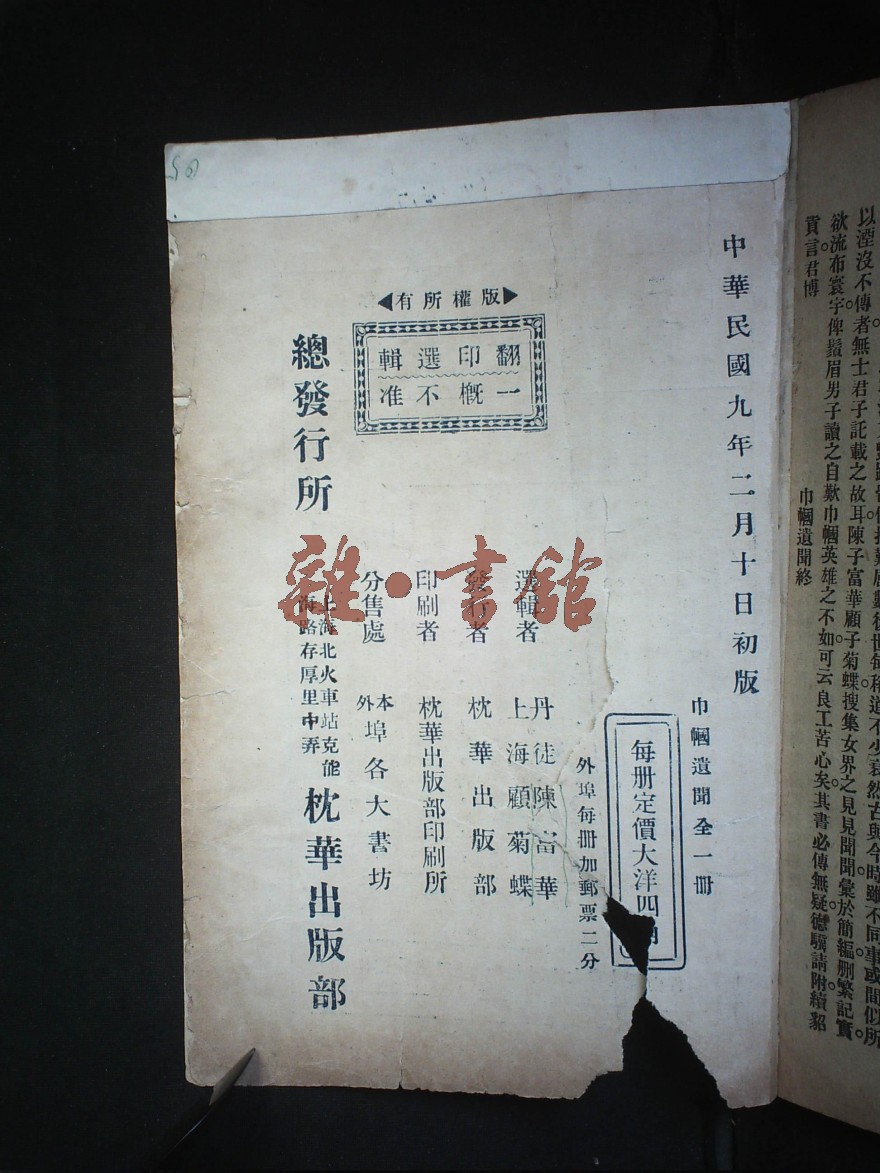 後世每稱道不少衰然古與今時雖不同事或間似所
以湮沒不傳者無士君子託載之故耳陳子富華顧子菊蝶搜集女界之見見聞聞彙於簡編删繁記實
欲流布寰宇俾鬚眉男子讀之自歎巾幗英雄之不如可云良工苦心矣其書必傳無疑德驥請附續貂
貢言君博
巾幗遺聞終
中華民國九年二月十日初版
巾幗遺聞全一冊
每册定價大洋四
外埠每冊加郵票二分
選輯者
丹徒陳富華
上海顧菊蝶
發行者 枕華出版部
印刷者 枕華出版部印刷所
分售處 本外埠各大書坊
版權所有
翻印選輯
一概不准
總發行所
上海北火車站克能
海路存厚里中弄
枕華出版部
雜·書館